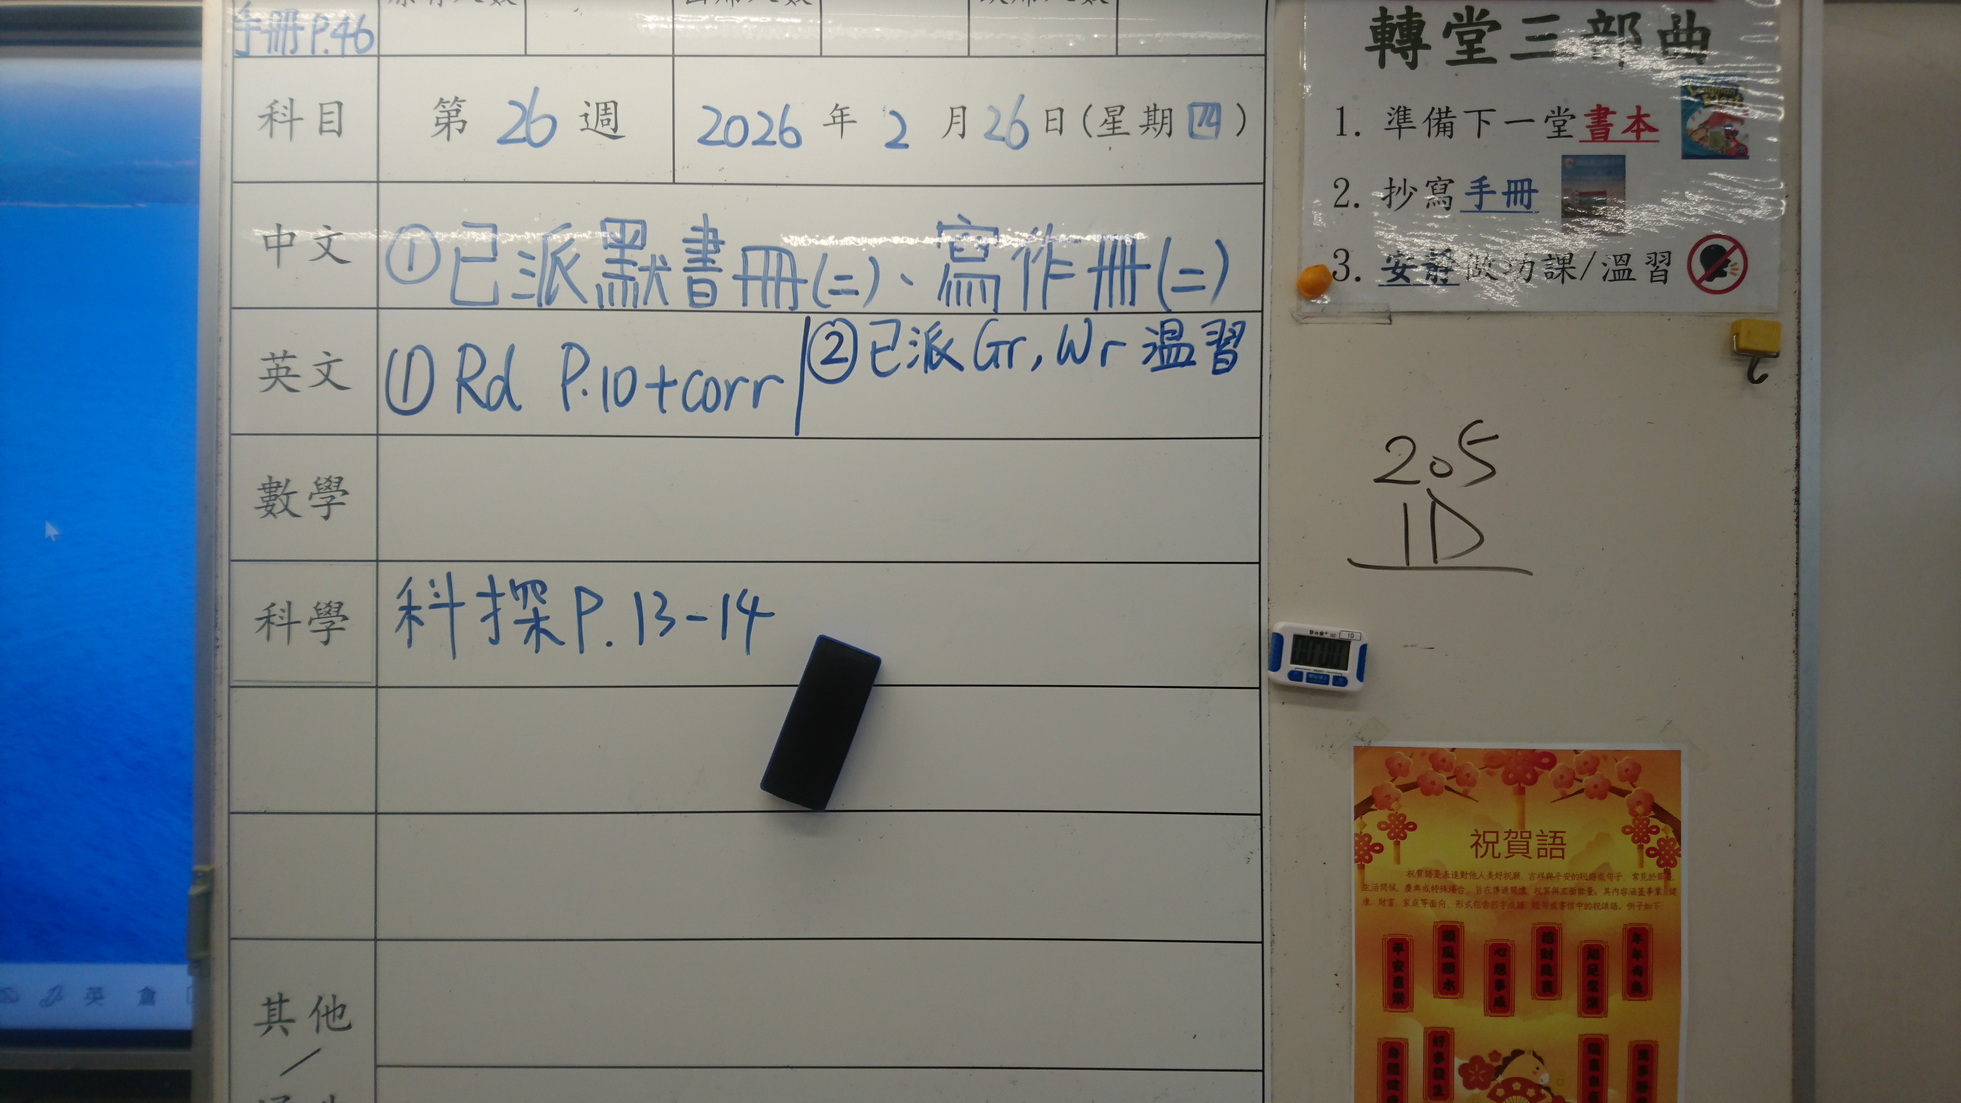 手冊 P.46
科目 第 26 週 2026 年 2 月 26 日(星期 四)
中文 ①已派默書冊(二)、寫作冊(二)
英文 ① Rd P.10+corr ②已派 Gr, Wr 溫習
數學
科學 科探 P.13-14
其他
/
轉堂三部曲
1. 準備下一堂書本
2. 抄寫手冊
3. 安靜做功課/溫習
205
1D
祝賀語
心想事成
年年有魚
英 倉